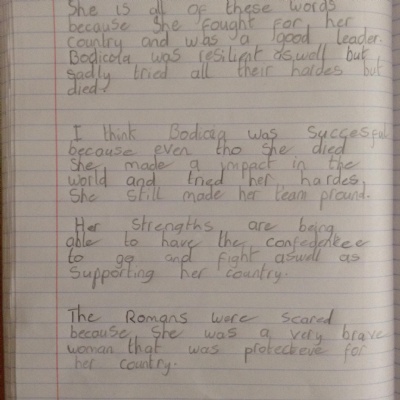 She is all of these words
because she fought for her
country and was a good leader.
Bodicola was resilient aswell but
sadly tried all their hardes but
died.
I think Bodicla was Succesful
because even tho she died
she made a impact in the
world and tried her hardes,
She still made her team pround.
Her strengths are being
able to have the confedence
to go and fight aswell as
Supporting her country.
The Romans were scared
because she was a very brave
woman that was protectieve for
her country.